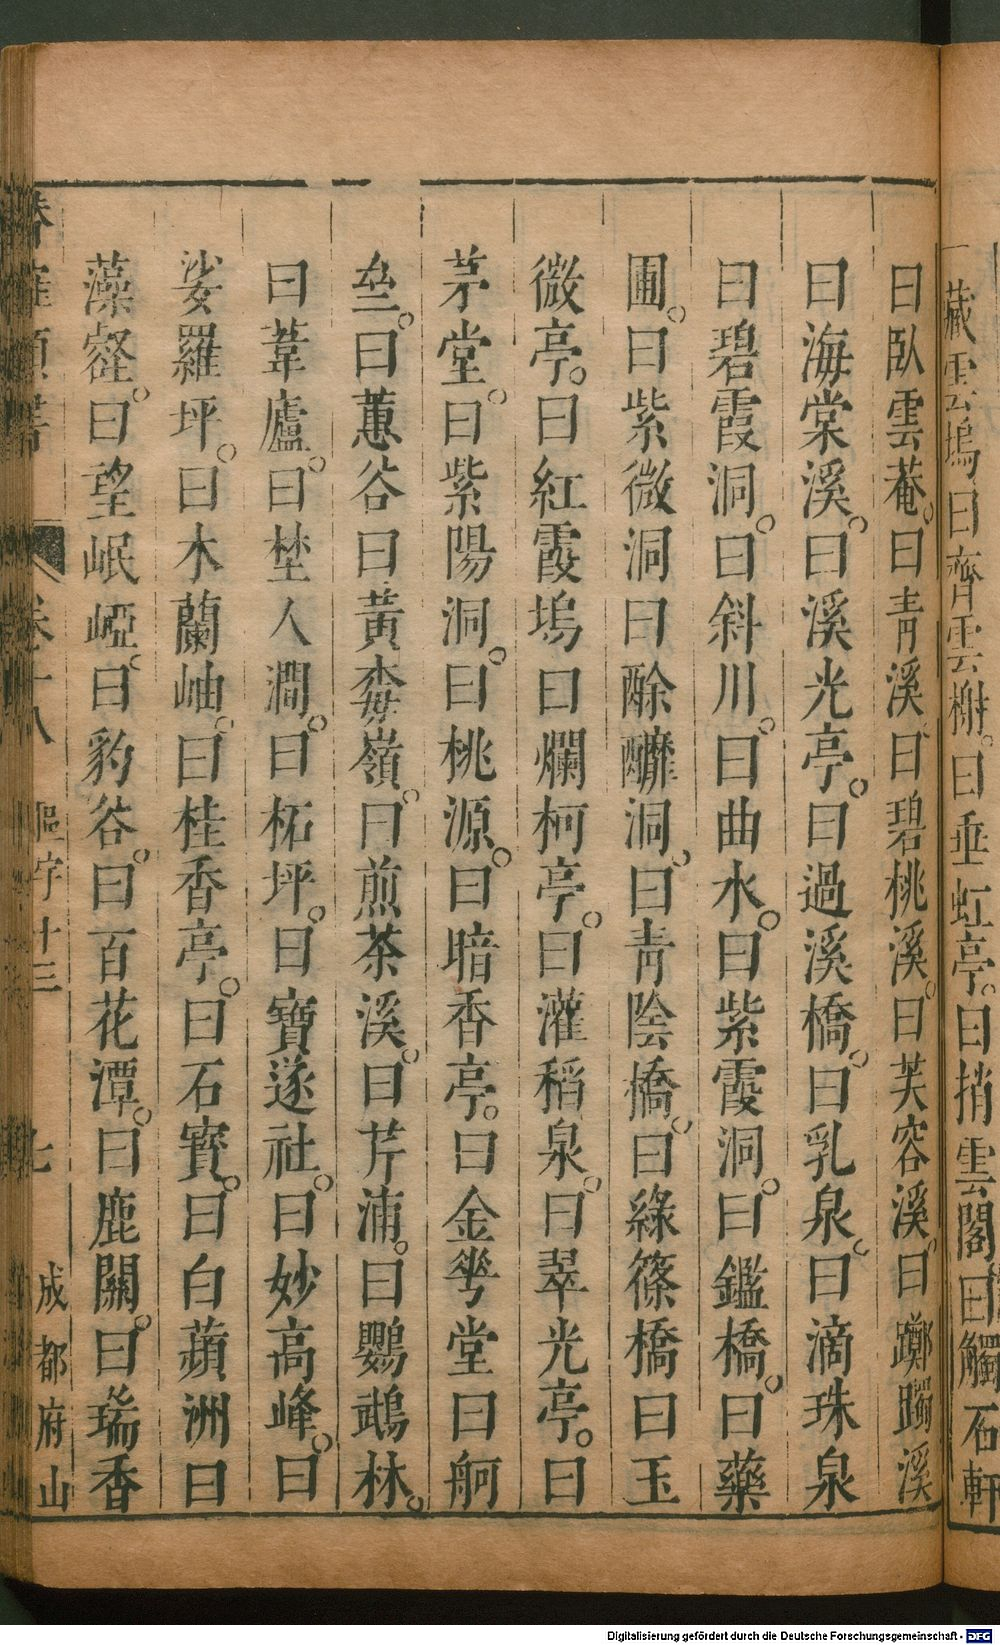 藏雲塢曰齊雲榭曰垂虹亭曰捎雲閣曰觸石軒
曰臥雲菴曰青溪曰碧桃溪曰芙容溪曰躑躅溪
曰海棠溪曰溪光亭曰過溪橋曰乳泉曰滴珠泉
曰碧霞洞曰斜川曰曲水曰紫霞洞曰鑑橋曰藥
圃曰紫微洞曰酴醾洞曰青陰橋曰綠篠橋曰玉
微亭曰紅霞塢曰爛柯亭曰灌稻泉曰翠光亭曰
茅堂曰紫陽洞曰桃源曰暗香亭曰金粤堂曰舸
曰蕙谷曰黃嶺曰煎茶溪曰芹浦曰鸚鵡林
曰葦廬曰埜人澗曰柘坪曰寶遂社曰妙高峰曰
娑羅坪曰木蘭岫曰桂香亭曰石寶曰白蘋洲曰
藻壑曰望岷埡曰豹谷曰百花潭曰鹿關曰瑞香
卷十八
十三
七
成都府山
Digitalisierung gefördert durch die Deutsche Forschungsgemeinschaft - DFG